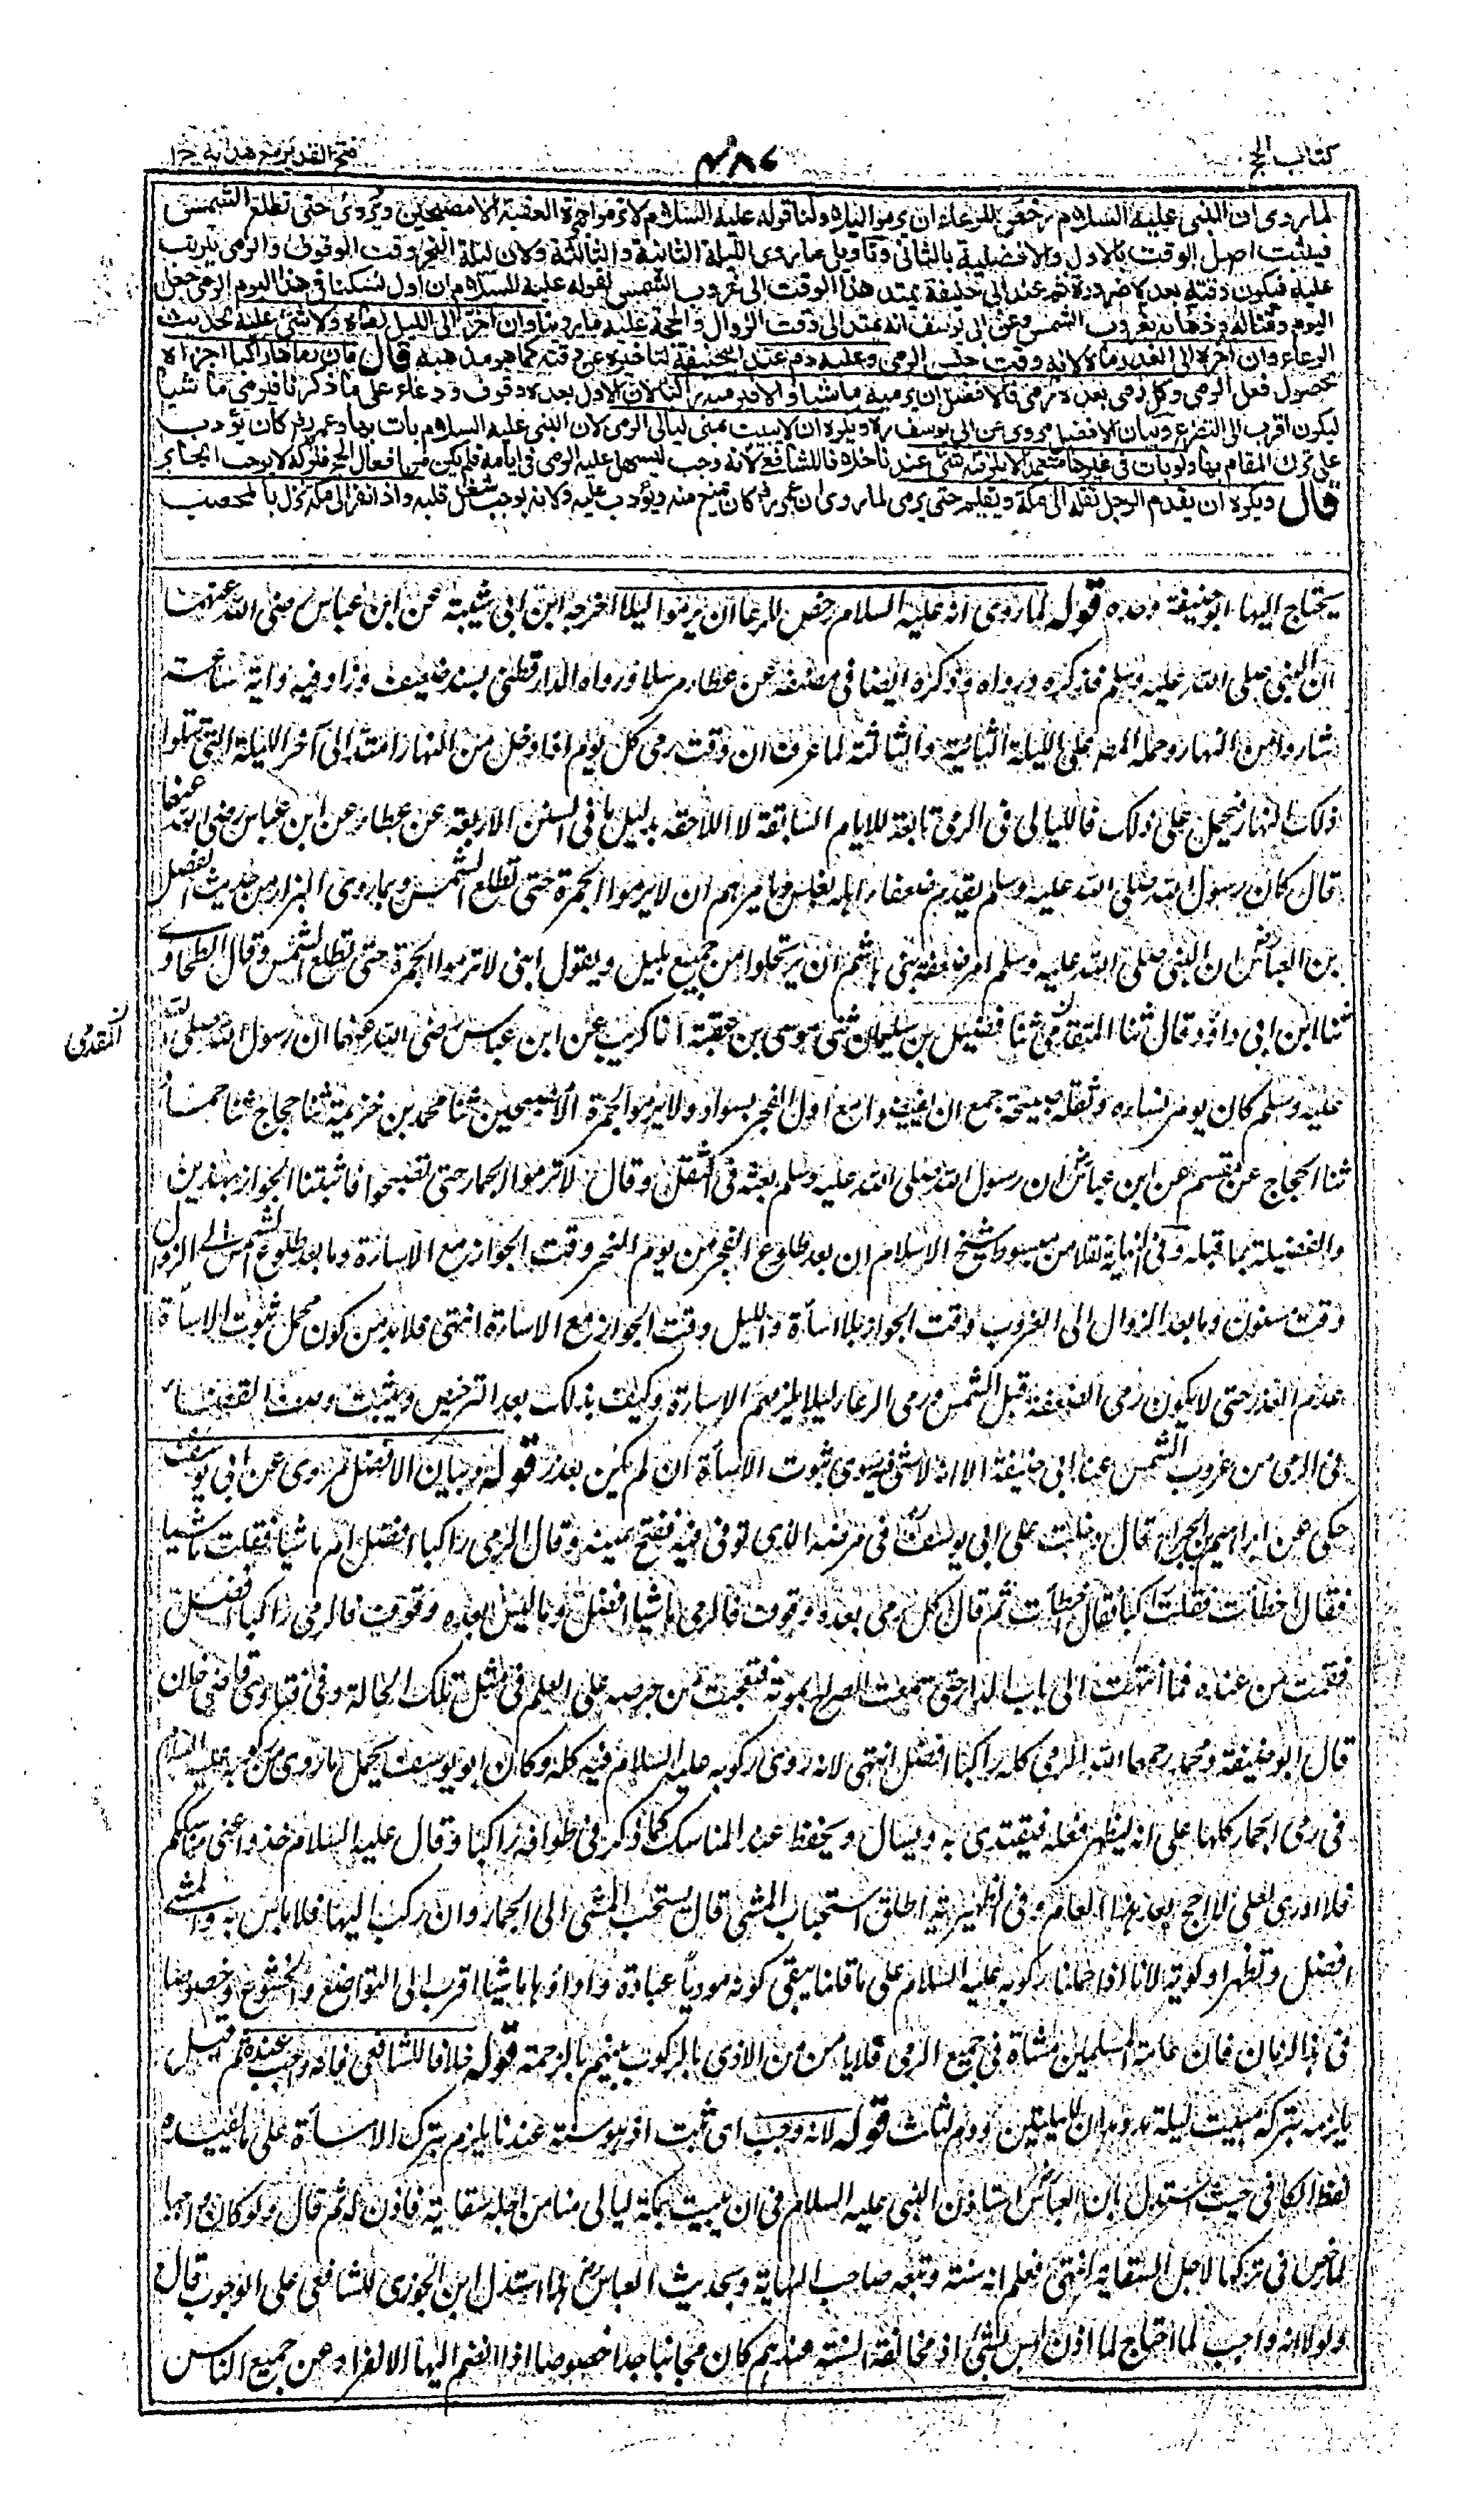 كتاب الحج
٤٨٦
فتح القدير مع هدايه ج ١
لما روى ان النبي عليه السلام رخص للرعاء ان يرموا ليلا ولنا قوله عليه السلام لا ترموا جمرة العقبة الا مصبحين ويروى حتى تطلع الشمس
فيثبت اصل الوقت بالاول والافضلية بالثاني وتأويل ما روى الليلة الثانية والثالثة ولان ليلة النحر وقت الوقوف والرمي يترتب
عليه فيكون وقته بعده ضرورة ثم عند ابي حنيفة يمتد هذا الوقت الى غروب الشمس لقوله عليه السلام ان اول نسكنا في هذا اليوم الرمي جعل
اليوم وقتا له وذهابه بغروب الشمس وعن ابي يوسف انه يمتد الى وقت الزوال والحجة عليه ما روينا وان اخر الى الليل رماه ولا شئ عليه لحديث
الرعاء وان اخره الى الغد رماه لانه وقت جنس الرمي وعليه دم عند ابي حنيفة لتأخيره عن وقته كما هو مذهبه قال فان رماها راكبا اجزاه
لحصول فعل الرمي وكل رمي بعده رمي فالافضل ان يرميه ماشيا والا فيرميه راكبا لان الاول بعده وقوف ودعاء على ما ذكرنا فيرمي ماشيا
ليكون اقرب الى التضرع وبيان الافضل مروى عن ابي يوسف ره ويكره ان لا يبيت بمنى ليالي الرمي لان النبي عليه السلام بات بها وعمر رض كان يؤدب
على ترك المقام بها ولو بات في غيرها متعمدا لا يلزمه شئ عندنا خلافا للشافعي لانه وجب ليسهل عليه الرمي في ايامه فلم يكن من افعال الحج فتركه لا يوجب الجابر
قال ويكره ان يقدم الرجل ثقله الى مكة ويقيم حتى يرمي لما روى ان عمر رض كان يمنع منه ويؤدب عليه ولانه يوجب شغل قلبه واذا نفر الى مكة نزل بالمحصب
يحتاج اليها ابو حنيفة وحده قوله لما روى انه عليه السلام رخص للرعا ان يرموا ليلا اخرجه ابن ابي شيبة عن ابن عباس رضى الله عنهما
ان النبي صلى الله عليه وسلم فذكره ورواه وذكره ايضا في مصنفه عن عطاء مرسلا ورواه الدارقطني بسند ضعيف وزاد فيه واية ساعة
شاروا من النهار وحمله المصر على الليلة الثانية والثالثة لما عرف ان وقت رمى كل يوم اذا دخل من النهار امتد الى آخر الليلة التي تتلوا
ذلك النهار فيحمل على ذلك فالليالي في الرمي تابعة للايام السابقة لا اللاحقة بدليل ما في السنن الاربعة عن عطاء عن ابن عباس رضى الله عنهما
قال كان رسول الله صلى الله عليه وسلم يقدم ضعفاء اهله بغلس ويامرهم ان لا يرموا الجمرة حتى تطلع الشمس وبما روى البزار من حديث الفضل
بن العباس ان النبي صلى الله عليه وسلم امر ضعفة بني هاشم ان يرتحلوا من جمع بليل ويقول ابني لا ترموا الجمرة حتى تطلع الشمس وقال الطحاوى
ثنا ابن ابي داؤد قال ثنا المقدمي ثنا فضيل بن سليمان ثني موسى بن عقبة انا كريب عن ابن عباس رضى الله عنهما ان رسول الله صلى الله
المقدمى
عليه وسلم كان يومر نساءه وثقله صبيحة جمع ان يفيضوا مع اول الفجر بسواد ولا يرموا الجمرة الا مصبحين ثنا محمد بن خزيمة ثنا حجاج ثنا حماد
ثنا الحجاج عن مقسم عن ابن عباس ان رسول الله صلى الله عليه وسلم بعثه في الثقل وقال لا ترموا الجمار حتى تصبحوا فاثبتنا الجواز بهذين
والفضيلة بما قبله وفي النهاية نقلا من مبسوط شيخ الاسلام ان بعد طلوع الفجر من يوم النحر وقت الجواز مع الاساءة وما بعد طلوع الشمس الى الزوال
وقت مسنون وما بعد الزوال الى الغروب وقت الجواز بلا اساءة والليل وقت الجواز مع الاساءة انتهى فلا بد من كون محمل ثبوت الاساءة
عدم العذر حتى لا يكون رمى الضعفة قبل الشمس ورمى الرعاء ليلا يلزمهم الاساءة وكيف بذلك بعد الترخيص ويثبت وصف القضاء
في الرمي من غروب الشمس عند ابي حنيفة الا انه لا شئ فيه سوى ثبوت الاساءة ان لم يكن بعذر قوله وبيان الافضل مروى عن ابي يوسف
حكى عن ابراهيم بن الجراح قال دخلت على ابي يوسف في مرضه الذي توفى فيه ففتح عينيه وقال الرمي راكبا افضل ام ماشيا فقلت ماشيا
فقال اخطأت فقلت راكبا فقال اخطأت ثم قال كل رمى بعده وقوف فالرمي ماشيا افضل وما ليس بعده وقوف فالرمي راكبا افضل
فقمت من عنده فما انتهيت الى باب الدار حتى سمعت الصراخ بموته فتعجبت من حرصه على العلم في مثل تلك الحالة وفي فتاوى قاضي خان
قال ابو حنيفة ومحمد رحمهما الله الرمي كله راكبا افضل انتهى لانه روى ركوبه عليه السلام فيه كله وكان ابو يوسف يحمل ما روى من ركوبه عليه السلام
في رمى الجمار كلها على انه ليظهر فعله فيقتدى به ويسال ويحفظ عنه المناسك كما ذكر في طوافه راكبا وقال عليه السلام خذوا عني مناسككم
فلا ادرى لعلى لا احج بعد هذا العام وفي الظهيرية اطلق استحباب المشي قال يستحب المشي الى الجمار وان ركب اليها فلا باس به والمشي
افضل وتظهر اولويته لانا اذا حملنا ركوبه عليه السلام على ما قلنا يبقى كونه موديا عبادة واداؤها ماشيا اقرب الى التواضع والخشوع وخصوصا
في هذا الزمان فان عامة المسلمين مشاة في جميع الرمي فلا يامن من الاذى بالركوب بينهم بالزحمة قوله خلافا للشافعي فانه وجب عنده ثم قيل
يلزمه بتركه مبيت ليلة مد ومدان لليلتين ودم لثلاث قوله لانه وجب اى ثبت اذ هو سنة عندنا يلزم بتركه الاساءة على ما يفيده
لفظ الكافي حيث استدل بان العباس استاذن النبي عليه السلام في ان يبيت بمكة ليالي منا من اجل سقايته فاذن له ثم قال ولو كان واجبا
لما رخص في تركها لاجل السقاية انتهى فعلم انه سنة وتبعه صاحب النهاية وبحديث العباس رض هذا استدل ابن الجوزى للشافعي على الوجوب قال
ولولا انه واجب لما احتاج لما اذن ليس بشئ اذ مخالفة السنة عندهم كان مجانبا جدا خصوصا اذا انضم اليها الانفراد عن جميع الناس